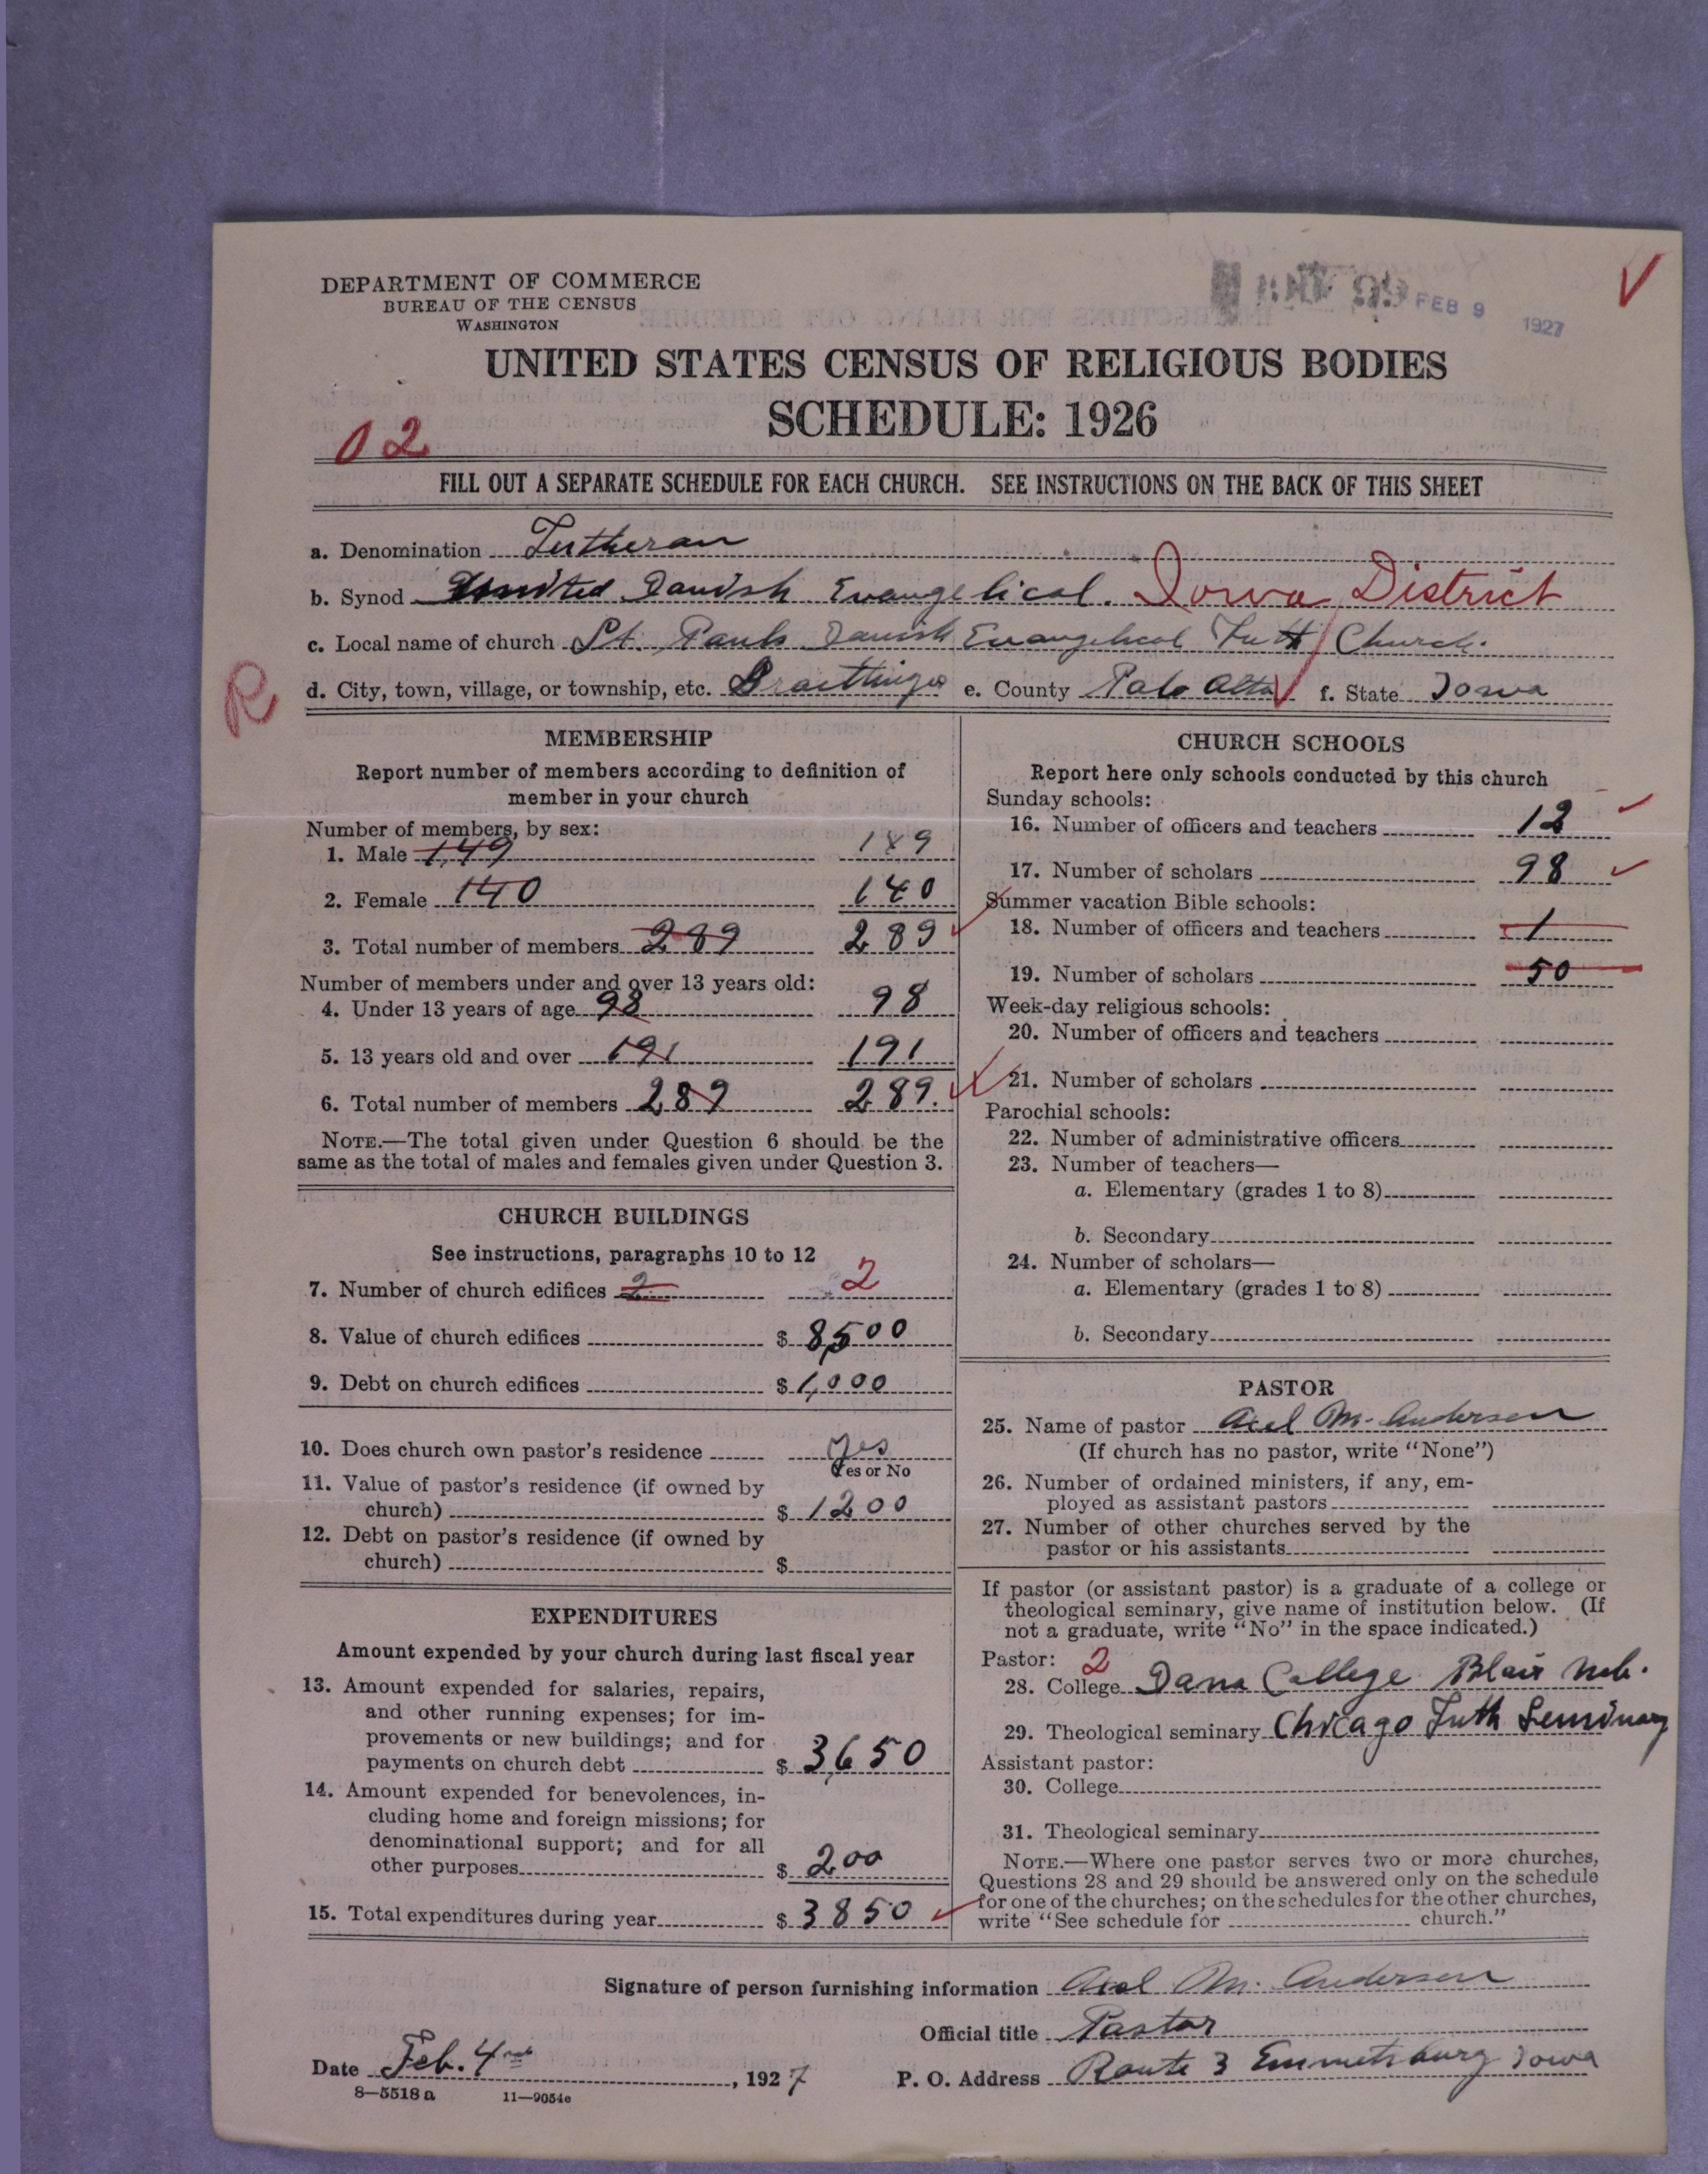 DEPARTMENT OF COMMERCE
BUREAU OF THE CENSUS
WASHINGTON
FEB 9 1927
V
UNITED STATES CENSUS OF RELIGIOUS BODIES
SCHEDULE: 1926
02
FILL OUT A SEPARATE SCHEDULE FOR EACH CHURCH. SEE INSTRUCTIONS ON THE BACK OF THIS SHEET
a. Denomination Lutheran
b. Synod United Danish Evangelical. Iowa District
c. Local name of church St. Pauls Danish Evangelical Luth Church.
R
d. City, town, village, or township, etc. Graettinger e. County Palo Alto f. State Iowa
MEMBERSHIP
Report number of members according to definition of
member in your church
Number of members, by sex:
1. Male 149 149
2. Female 140 140
3. Total number of members 289 289
Number of members under and over 13 years old:
4. Under 13 years of age 98 98
5. 13 years old and over 191 191
6. Total number of members 289 289.
NOTE.—The total given under Question 6 should be the
same as the total of males and females given under Question 3.
CHURCH BUILDINGS
See instructions, paragraphs 10 to 12
7. Number of church edifices 2 2
8. Value of church edifices $ 8,500
9. Debt on church edifices $ 1,000
10. Does church own pastor's residence Yes
Yes or No
11. Value of pastor's residence (if owned by
church) $ 1200
12. Debt on pastor's residence (if owned by
church) $
EXPENDITURES
Amount expended by your church during last fiscal year
13. Amount expended for salaries, repairs,
and other running expenses; for im-
provements or new buildings; and for
payments on church debt $ 3,650
14. Amount expended for benevolences, in-
cluding home and foreign missions; for
denominational support; and for all
other purposes $ 200
15. Total expenditures during year $ 3850
CHURCH SCHOOLS
Report here only schools conducted by this church
Sunday schools:
16. Number of officers and teachers 12
17. Number of scholars 98
Summer vacation Bible schools:
18. Number of officers and teachers 1
19. Number of scholars 50
Week-day religious schools:
20. Number of officers and teachers
21. Number of scholars
Parochial schools:
22. Number of administrative officers
23. Number of teachers—
a. Elementary (grades 1 to 8)
b. Secondary
24. Number of scholars—
a. Elementary (grades 1 to 8)
b. Secondary
PASTOR
25. Name of pastor Axel M. Andersen
(If church has no pastor, write "None")
26. Number of ordained ministers, if any, em-
ployed as assistant pastors
27. Number of other churches served by the
pastor or his assistants
If pastor (or assistant pastor) is a graduate of a college or
theological seminary, give name of institution below. (If
not a graduate, write "No" in the space indicated.)
Pastor: 2
28. College Dana College Blair Neb.
29. Theological seminary Chicago Luth Seminary
Assistant pastor:
30. College
31. Theological seminary
NOTE.—Where one pastor serves two or more churches,
Questions 28 and 29 should be answered only on the schedule
for one of the churches; on the schedules for the other churches,
write "See schedule for church."
Signature of person furnishing information Axel M. Andersen
Official title Pastor
Date Feb. 4, 1927
P. O. Address Route 3 Emmetsburg Iowa
8—5518 a 11—9054c